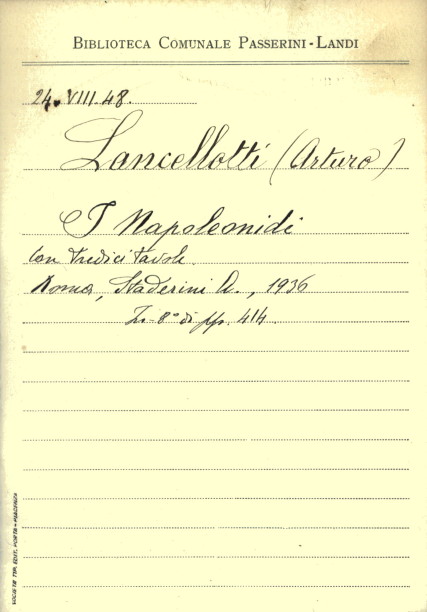 BIBLIOTECA COMUNALE PASSERINI-LANDI
24. VIII. 48.
Lancellotti (Arturo)
I Napoleonidi
Con tredici tavole.
Roma, Staderini A., 1936
In-8° di pp. 414
SOCIETÀ TIP. EDIT. PORTA - PIACENZA